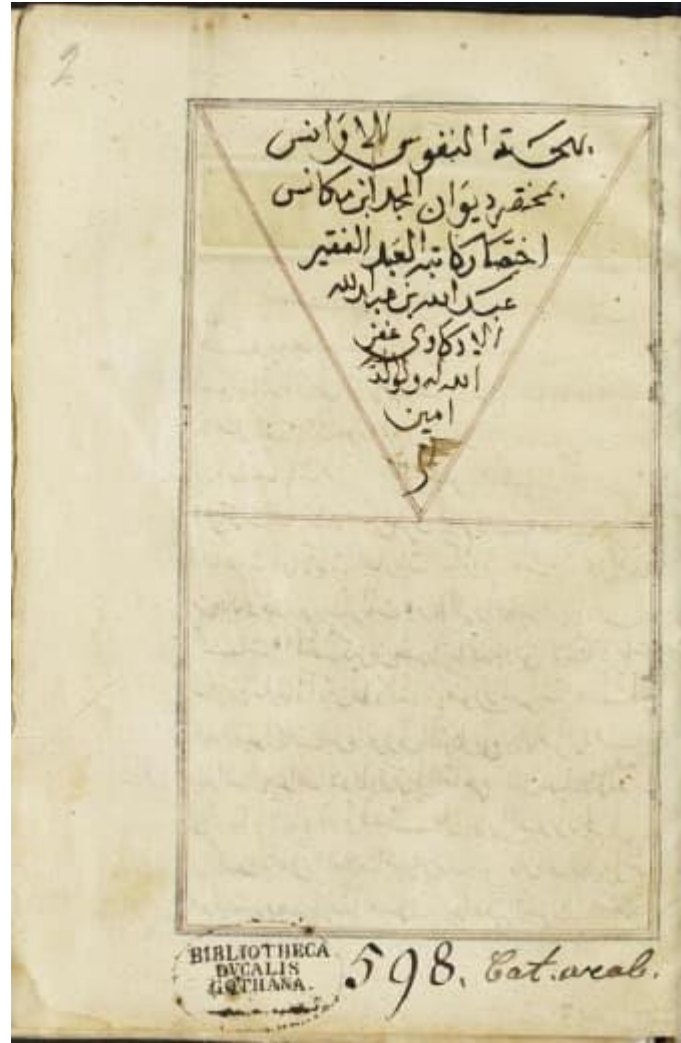 2
بهجة النفوس الاوانس
بمختصر ديوان المجد ابن مكانس
اختصار كاتبه العبد الفقير
عبد الله بن عبد الله
الادكاوى غفر
الله له ولوالديه
امين
BIBLIOTHECA
DVCALIS
GOTHANA.
598. Cat. arab.